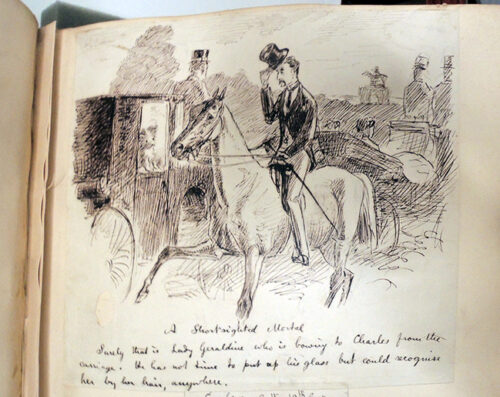 A Shortsighted Mortal
Surely that is Lady Geraldine who is bowing to Charles from the
carriage. He has not time to put up his glass but could recognise
her by her hair, anywhere.